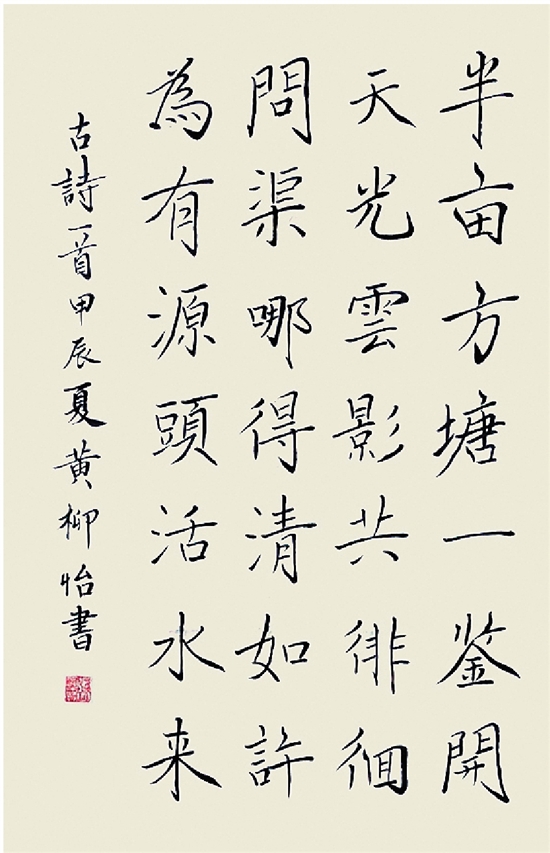 半亩方塘一鉴開
天光雲影共徘徊
問渠哪得清如許
為有源頭活水来
古詩一首甲辰夏黄柳怡書